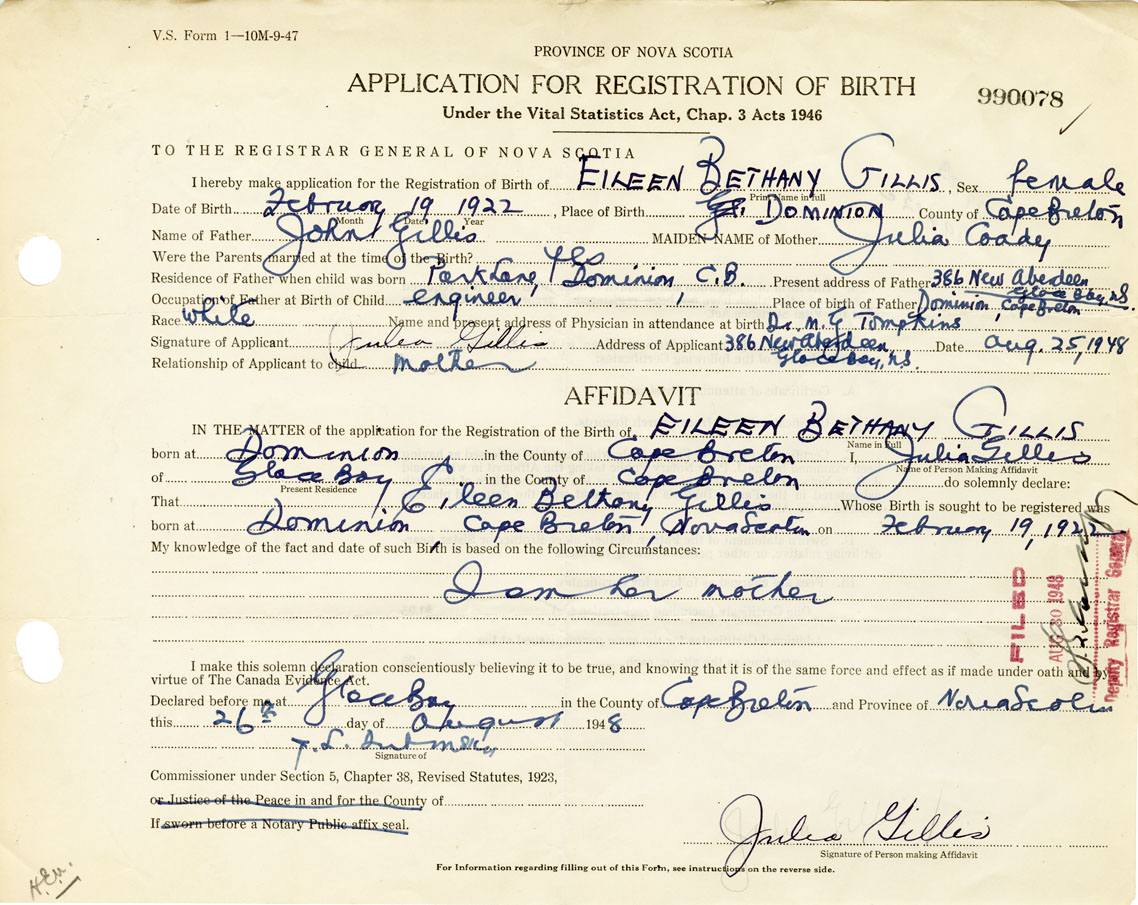 V.S. Form 1—10M-9-47
PROVINCE OF NOVA SCOTIA
APPLICATION FOR REGISTRATION OF BIRTH
990078
Under the Vital Statistics Act, Chap. 3 Acts 1946
TO THE REGISTRAR GENERAL OF NOVA SCOTIA
I hereby make application for the Registration of Birth of EILEEN BETHANY GILLIS, Sex female
Print Name in full
Date of Birth February 19 1922, Place of Birth DOMINION County of Cape Breton
Month Date Year
Name of Father John Gillis MAIDEN NAME of Mother Julia Coady
Were the Parents married at the time of the Birth? Yes
Residence of Father when child was born Park Lane, Dominion, C.B. Present address of Father 386 New Aberdeen Glace Bay, N.S.
Occupation of Father at Birth of Child engineer, Place of birth of Father Dominion, Cape Breton
Race white Name and present address of Physician in attendance at birth Dr. M. G. Tompkins
Signature of Applicant Julia Gillis Address of Applicant 386 New Aberdeen, Glace Bay, N.S. Date Aug. 25, 1948
Relationship of Applicant to child mother
AFFIDAVIT
IN THE MATTER of the application for the Registration of the Birth of EILEEN BETHANY GILLIS
Name in Full
born at Dominion in the County of Cape Breton I, Julia Gillis
Name of Person Making Affidavit
of Glace Bay in the County of Cape Breton do solemnly declare:
Present Residence
That Eileen Bethany Gillis Whose Birth is sought to be registered was
born at Dominion Cape Breton, Nova Scotia on February 19, 1922
My knowledge of the fact and date of such Birth is based on the following Circumstances:
I am her mother
FILED
AUG 30 1948
Deputy Registrar General
I make this solemn declaration conscientiously believing it to be true, and knowing that it is of the same force and effect as if made under oath and by
virtue of The Canada Evidence Act.
Declared before me at Glace Bay in the County of Cape Breton and Province of Nova Scotia
this 26th day of August 1948
Signature of
Commissioner under Section 5, Chapter 38, Revised Statutes, 1923,
or Justice of the Peace in and for the County of
If sworn before a Notary Public affix seal.
Julia Gillis
Signature of Person making Affidavit
For Information regarding filling out of this Form, see instructions on the reverse side.